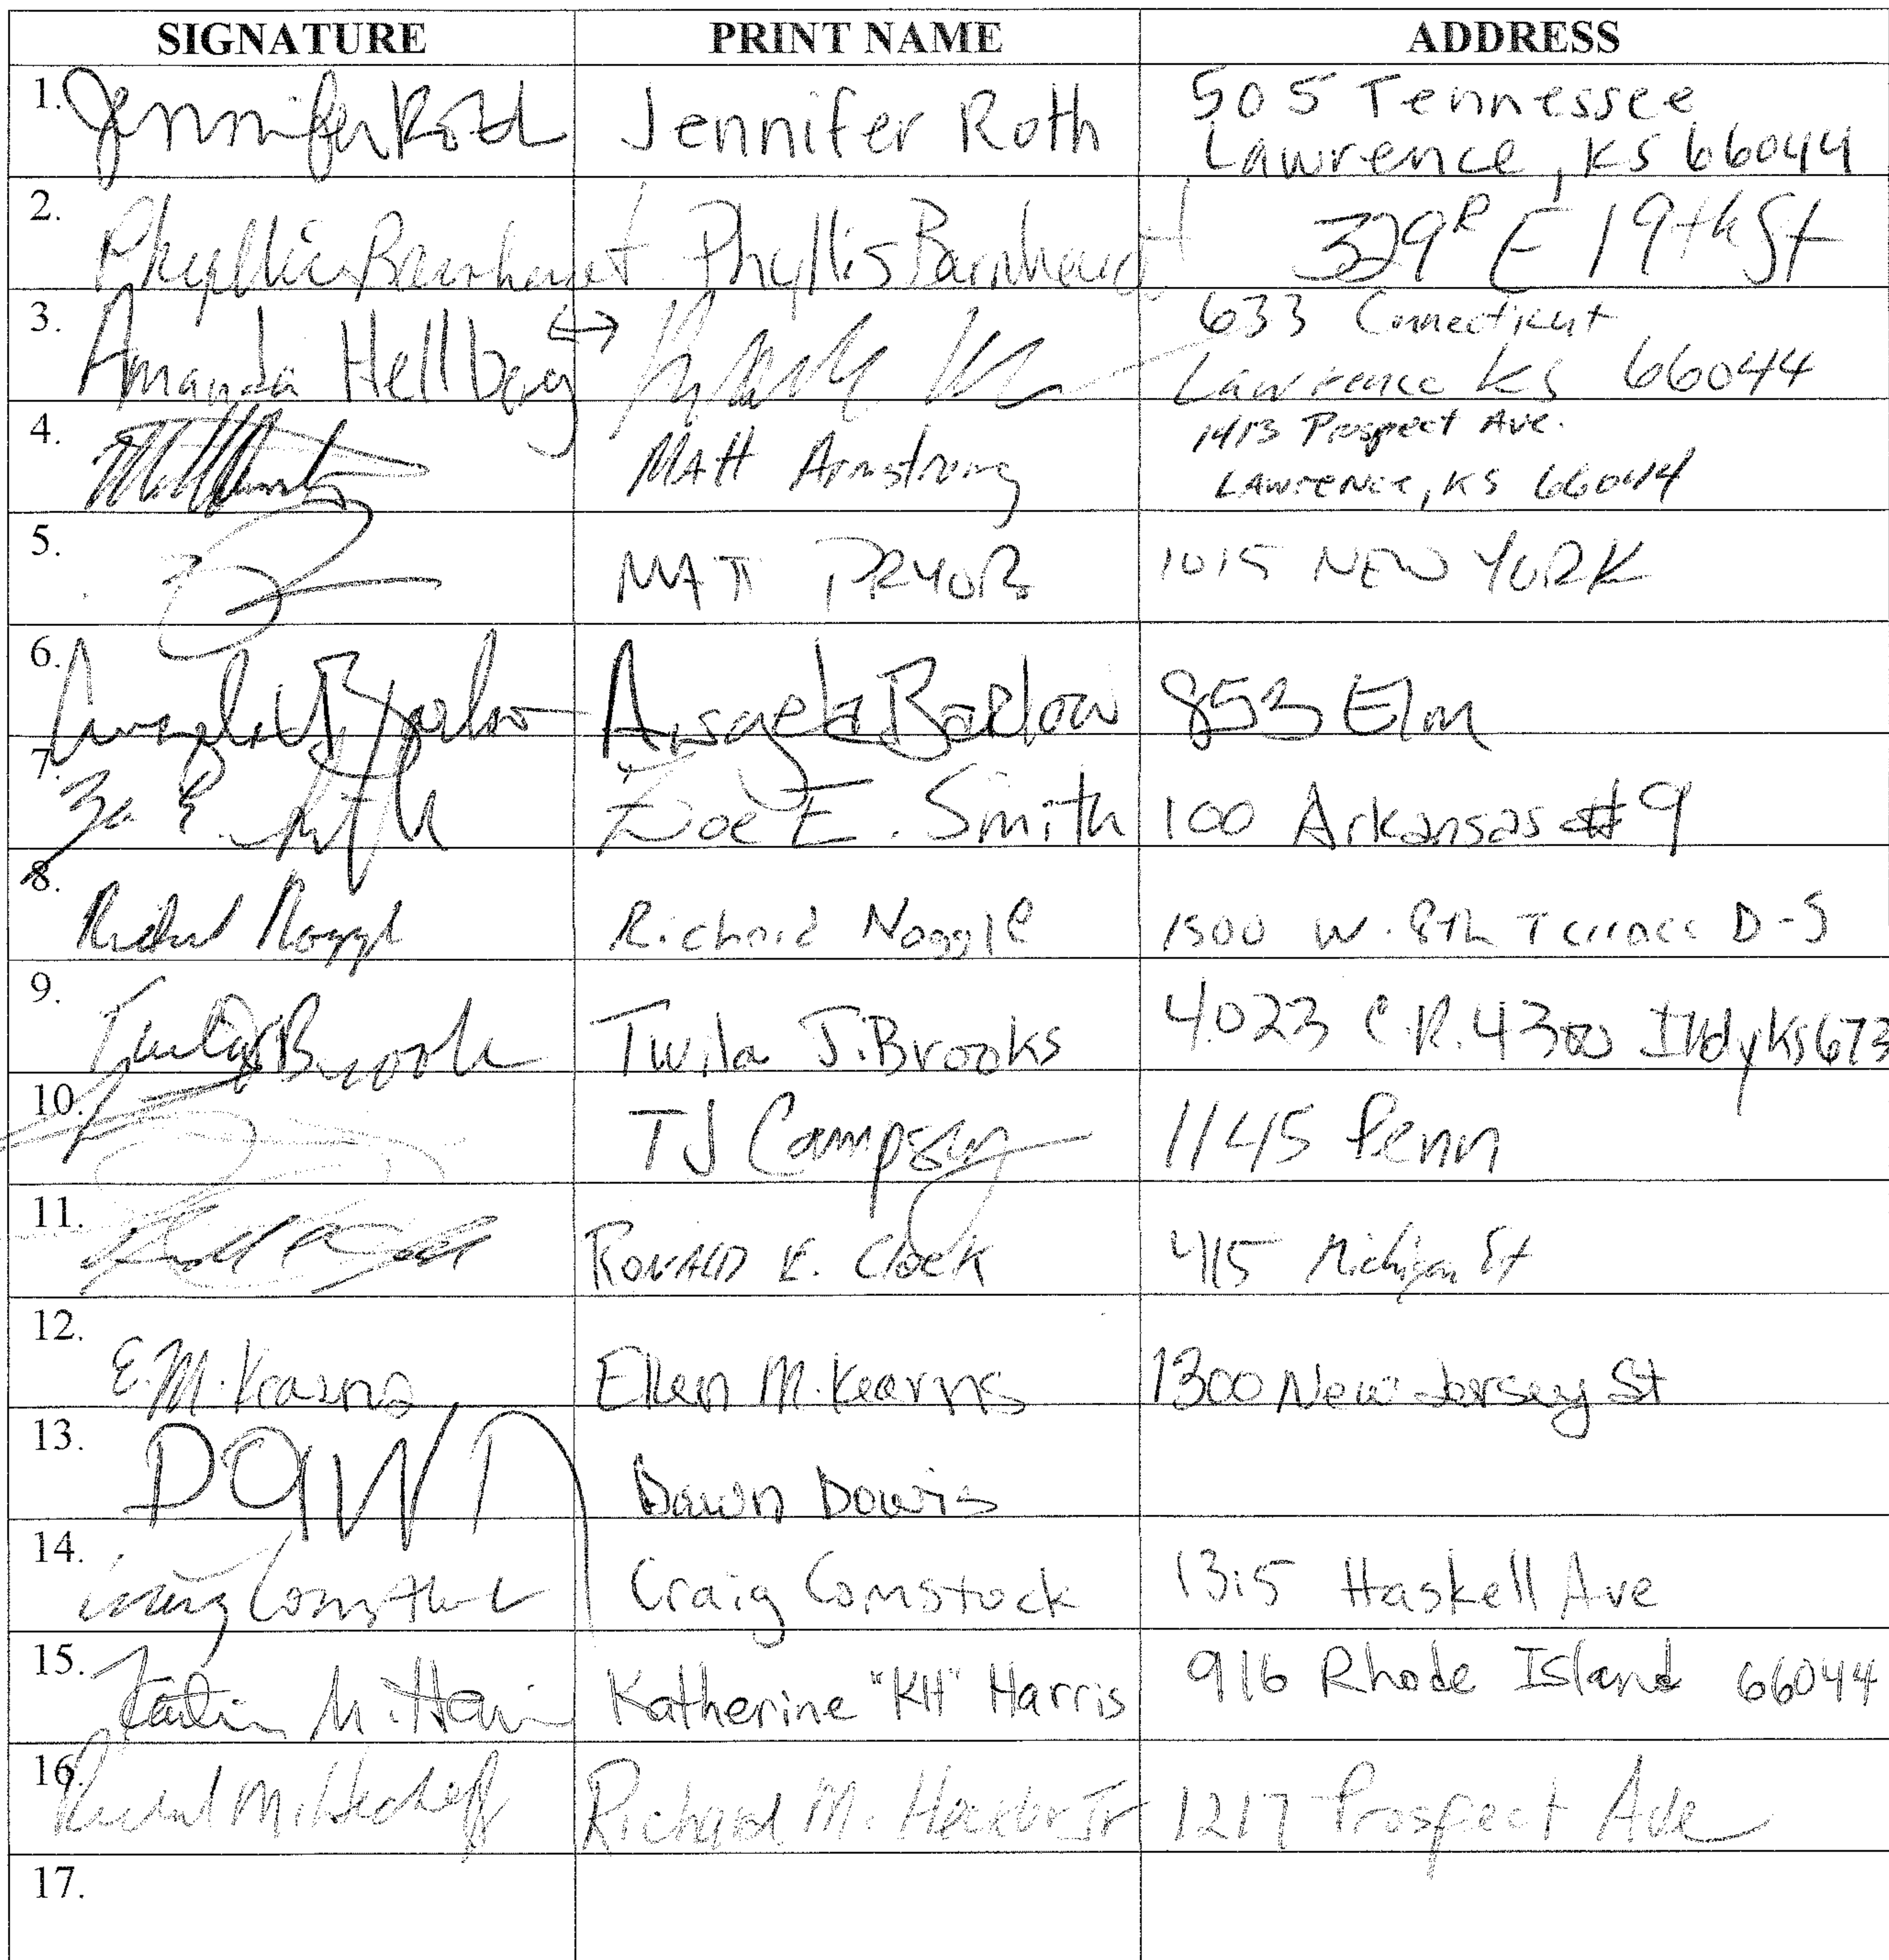 SIGNATURE PRINT NAME ADDRESS
1. Jennifer Roth Jennifer Roth 505 Tennessee
Lawrence, KS 66044
2. Phyllis Barnhart Phyllis Barnheart 329 R E 19th St
3. Amanda Hellberg ↔ 633 Connecticut
Lawrence KS 66044
4. Matt Armstrong 1413 Prospect Ave.
Lawrence, KS 66044
5. MATT PRYOR 1015 NEW YORK
6. Angela Barlow Angela Barlow 853 Elm
7. Zoe E. Smith 100 Arkansas #9
8. Richard Noggle Richard Noggle 1500 W. 8th Terrace D-5
9. Twila J Brooks Twila J. Brooks 4023 C.R. 4300 Indy KS 673
10. TJ Campsey 1145 Penn
11. RONALD E. Clock 415 Michigan St
12. E.M. Kearns Ellen M. Kearns 1300 New Jersey St
13. Dawn Dawn Dowis
14. Craig Comstock Craig Comstock 1315 Haskell Ave
15. Katherine "KH" Harris 916 Rhode Island 66044
16. Richard M. Richard M. Jr 1217 Prospect Ave
17.